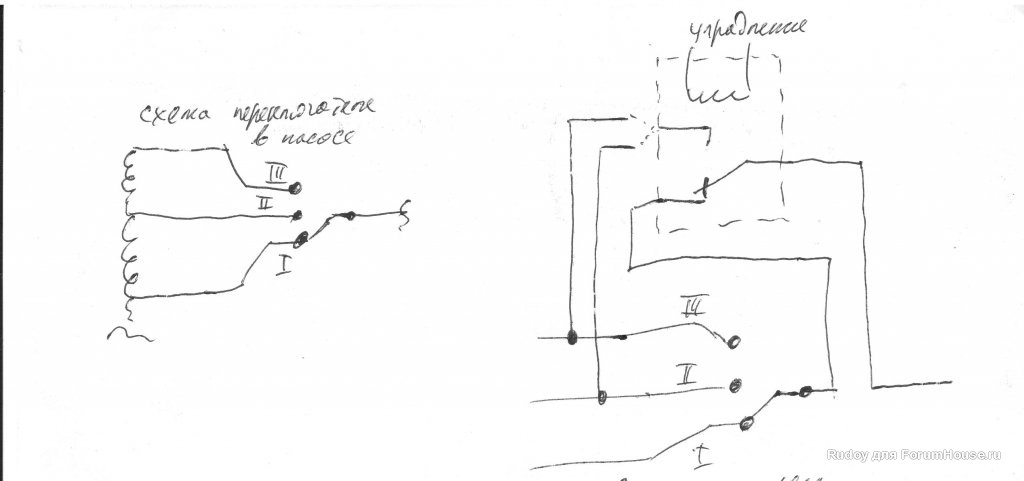 управление
схема переключателя
в насосе
III
II
I
III
II
I
Rudoy для ForumHouse.ru